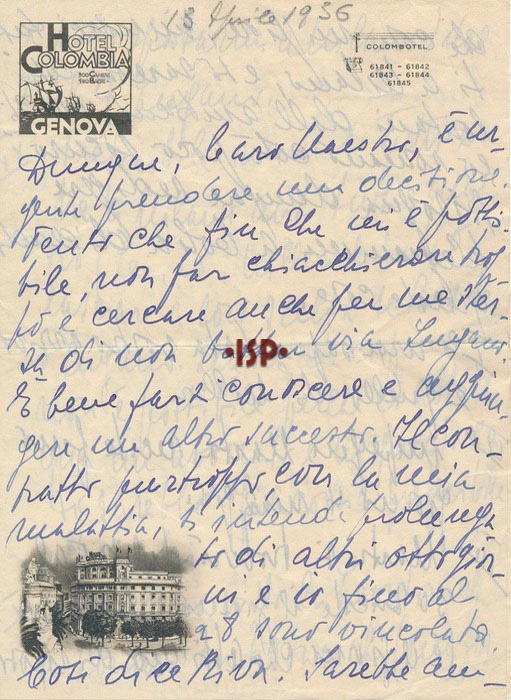 13 Aprile 1936
HOTEL
COLOMBIA
300 CAMERE
180 BAGNI
GENOVA
COLOMBOTEL
61841 - 61842
61843 - 61844
61845
Dunque, Caro Maestro, è ur-
gente prendere una decisione.
Tento che fin che mi è possi-
bile, non far chiacchierare trop
po e cercare anche per me stes-
sa di non via Lugano.
È bene farti conoscere e aggiun-
gere un altro successo. Il con-
tratto purtroppo, con la mia
malattia, s'intende prolunga
to di altri otto gior-
ni e io fino al
28 sono vincolata.
Così dice Riva. Sarebbe
·ISP·